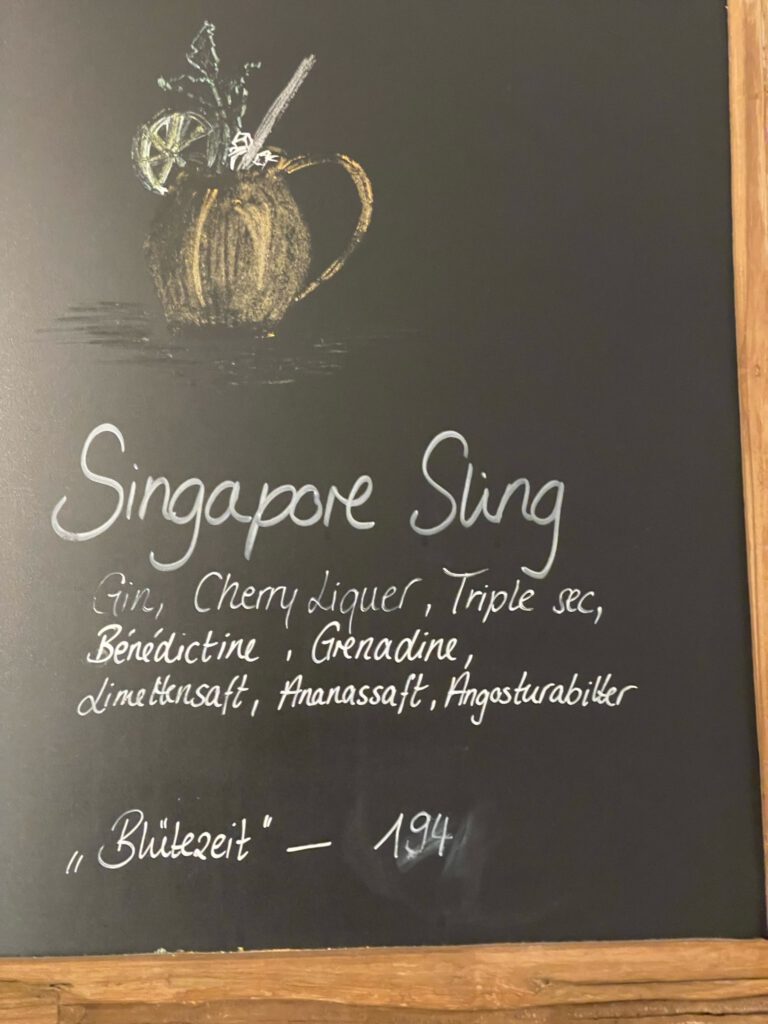 Singapore Sling
Gin, Cherry Liquer, Triple sec,
Bénédictine, Grenadine,
Limettensaft, Ananassaft, Angosturabitter
„Blütezeit" — 194